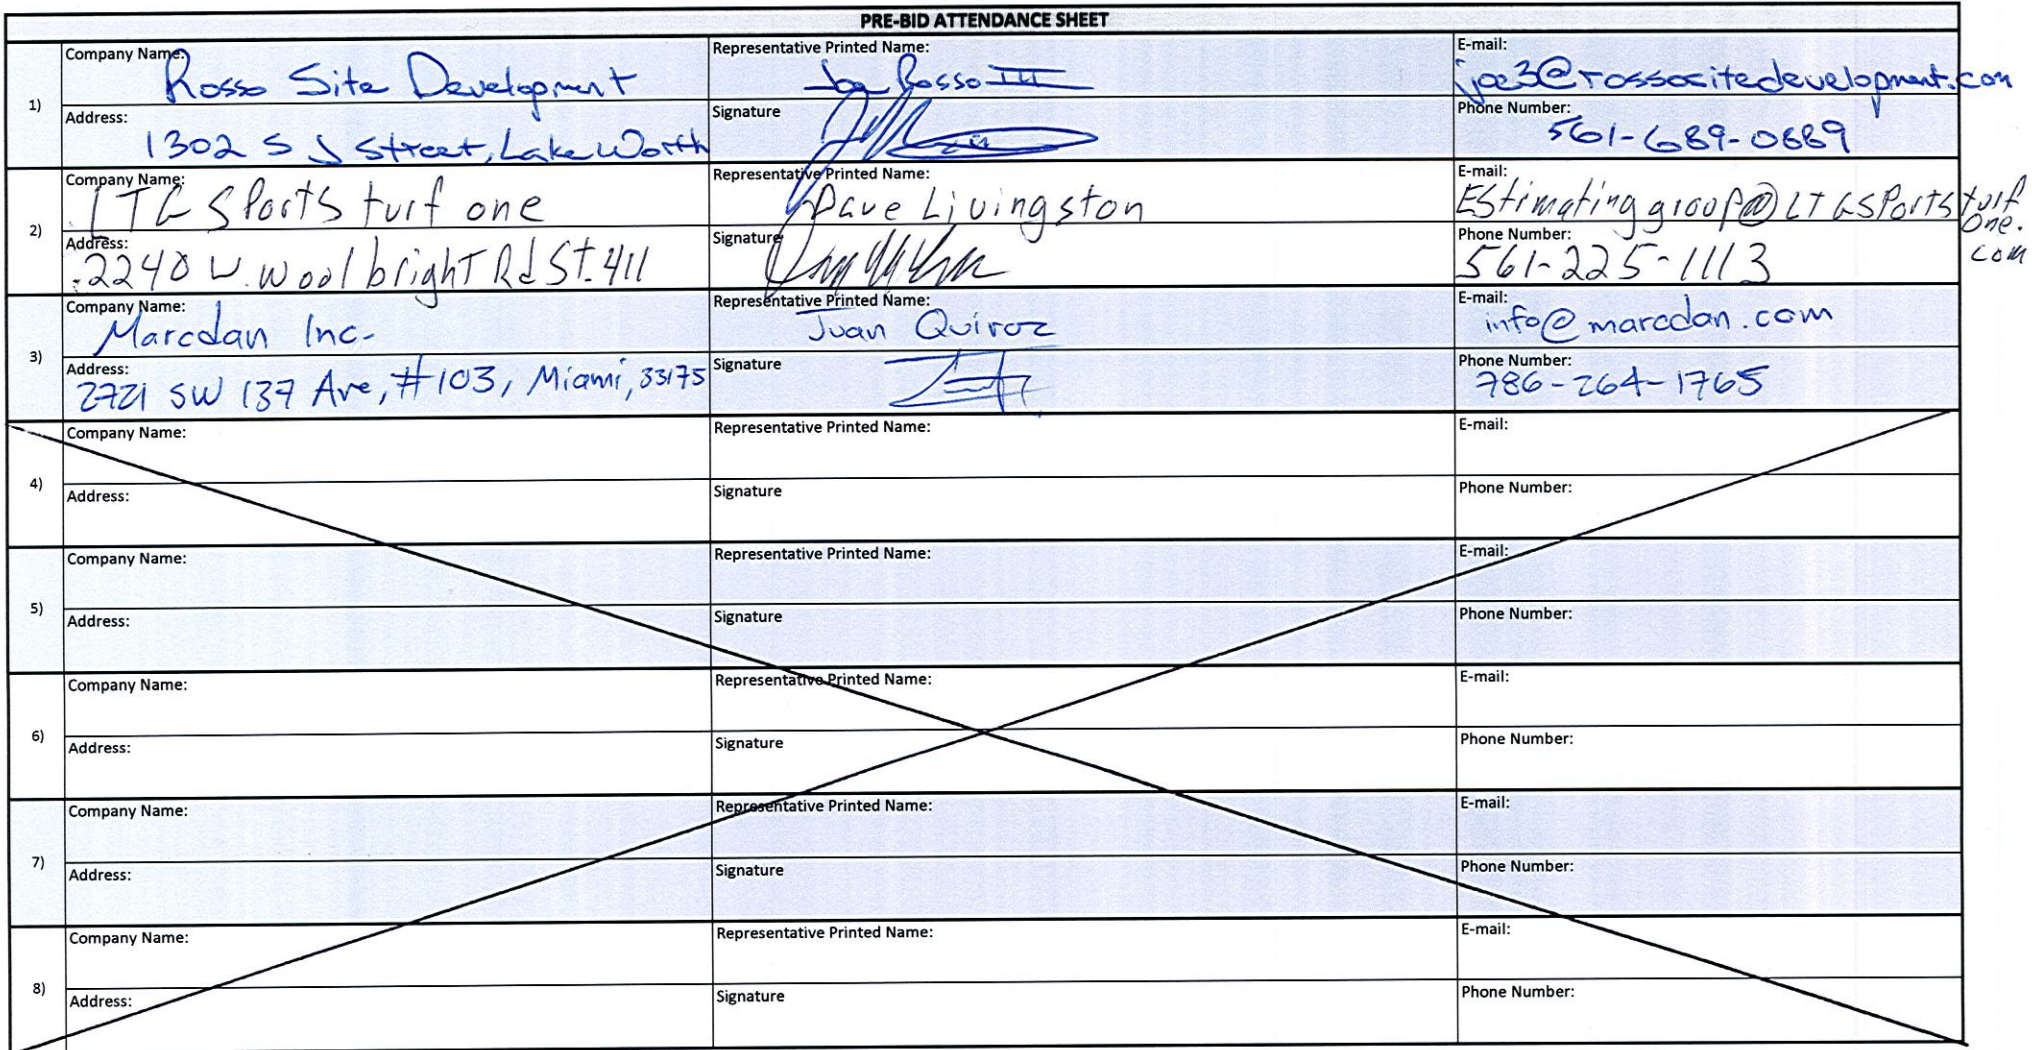 PRE-BID ATTENDANCE SHEET
1)
Company Name: Rosso Site Development
Representative Printed Name: Joe Rosso III
E-mail: joe3@rossositedevelopment.com
Address: 1302 S J Street, Lake Worth
Signature
Phone Number: 561-689-0889
2)
Company Name: LTG Sports turf one
Representative Printed Name: Dave Livingston
E-mail: Estimating group@LTGSPorts turf
one.
com
Address: 2240 W. Woolbright Rd St. 411
Signature
Phone Number: 561-225-1113
3)
Company Name: Marcdan Inc.
Representative Printed Name: Juan Quiroz
E-mail: info@marcdan.com
Address: 2721 SW 137 Ave, #103, Miami, 33175
Signature
Phone Number: 786-264-1765
4)
Company Name:
Representative Printed Name:
E-mail:
Address:
Signature
Phone Number:
5)
Company Name:
Representative Printed Name:
E-mail:
Address:
Signature
Phone Number:
6)
Company Name:
Representative Printed Name:
E-mail:
Address:
Signature
Phone Number:
7)
Company Name:
Representative Printed Name:
E-mail:
Address:
Signature
Phone Number:
8)
Company Name:
Representative Printed Name:
E-mail:
Address:
Signature
Phone Number: